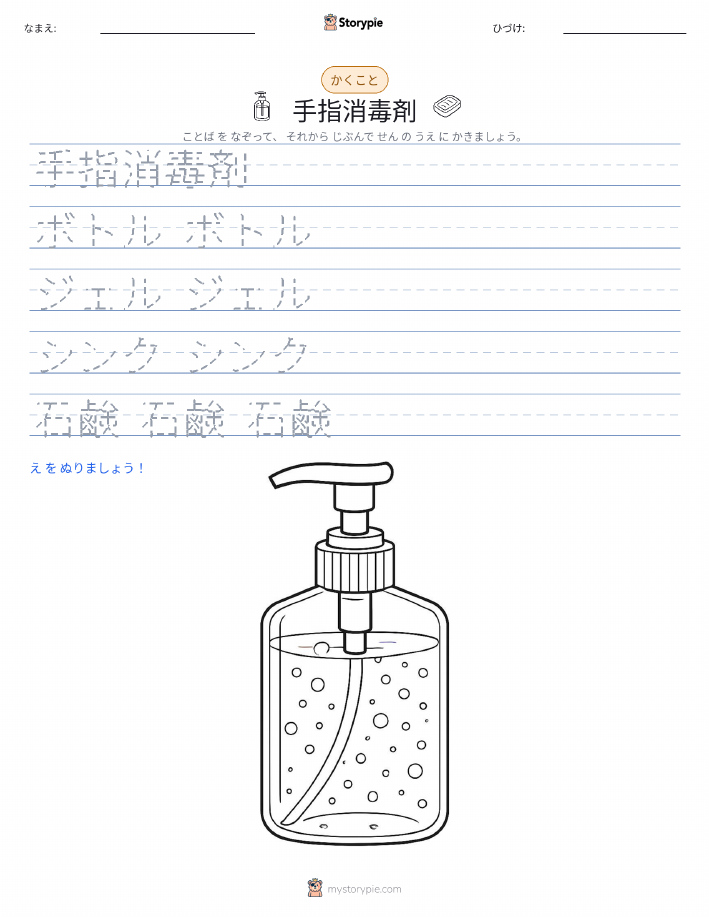 なまえ: Storypie ひづけ:
かくこと
手指消毒剤
ことば を なぞって、 それから じぶんで せん の うえ に かきましょう。
手指消毒剤
ボトル ボトル
ジェル ジェル
シンク シンク
石鹸 石鹸 石鹸
え を ぬりましょう！
mystorypie.com